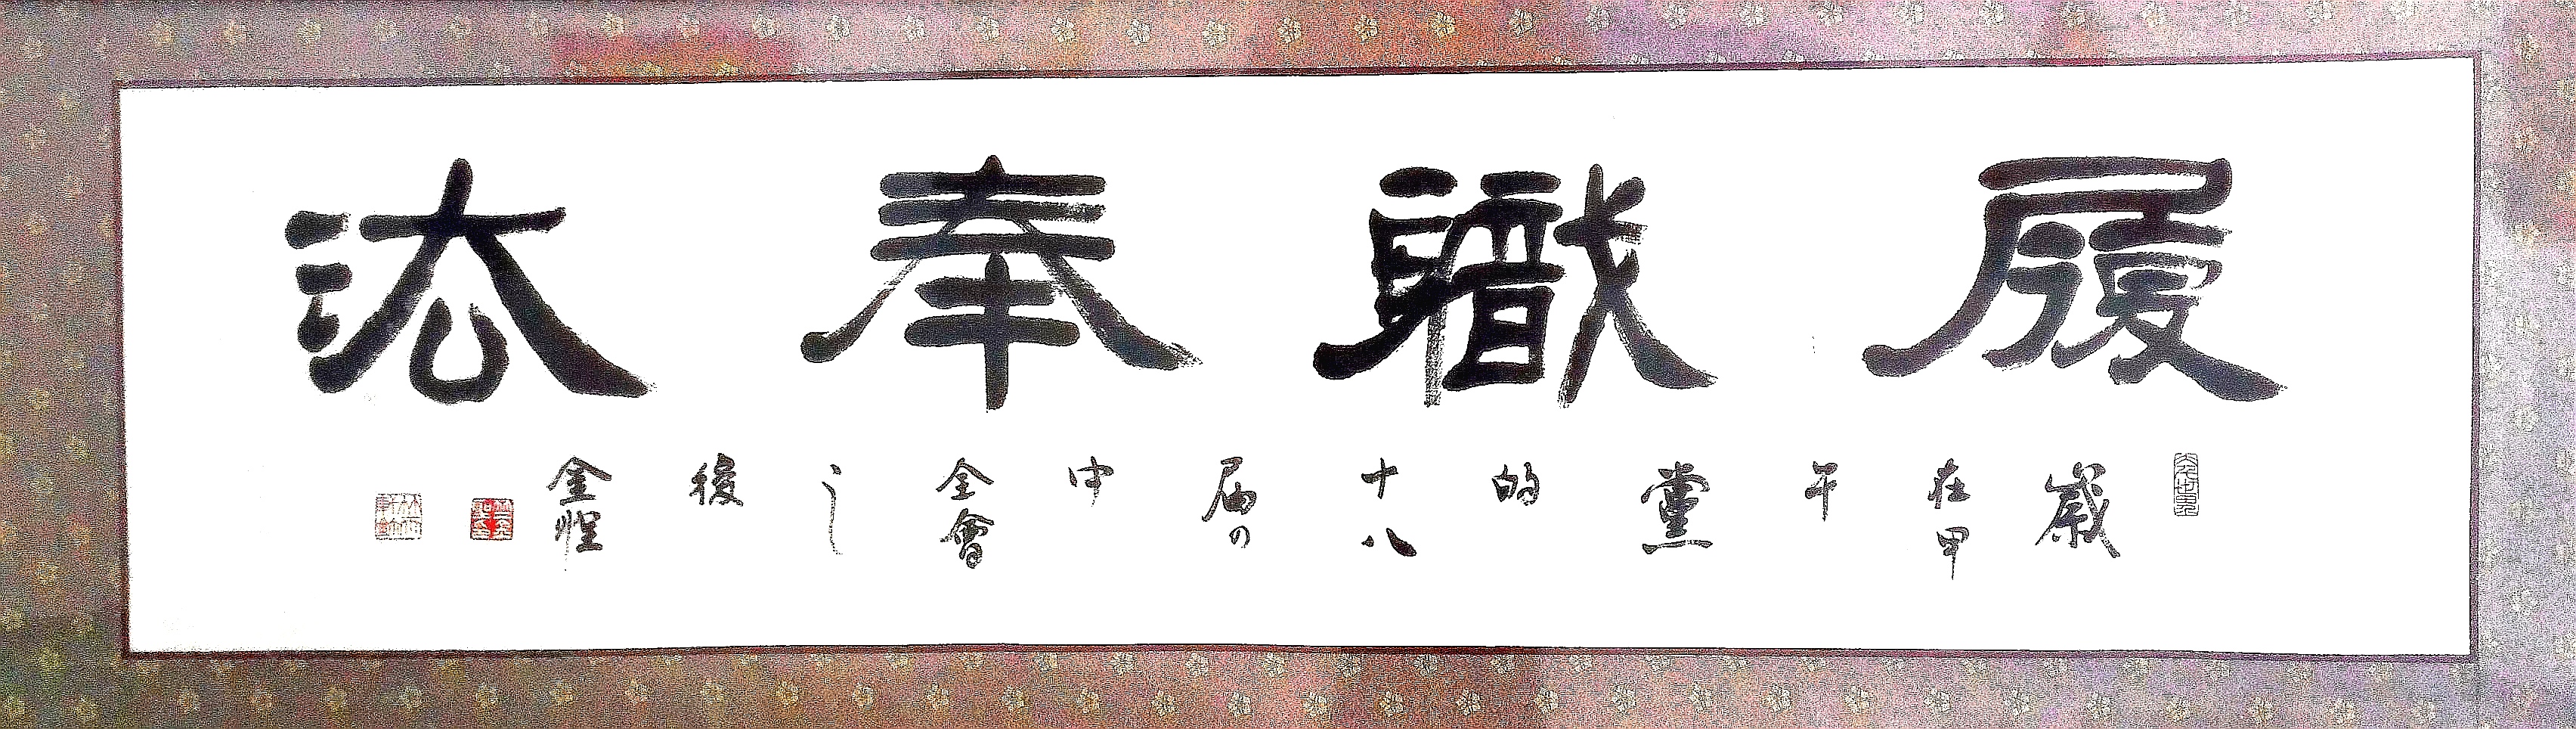 履職奉法
歲在甲午黨的十八届四中全會之後
金惺